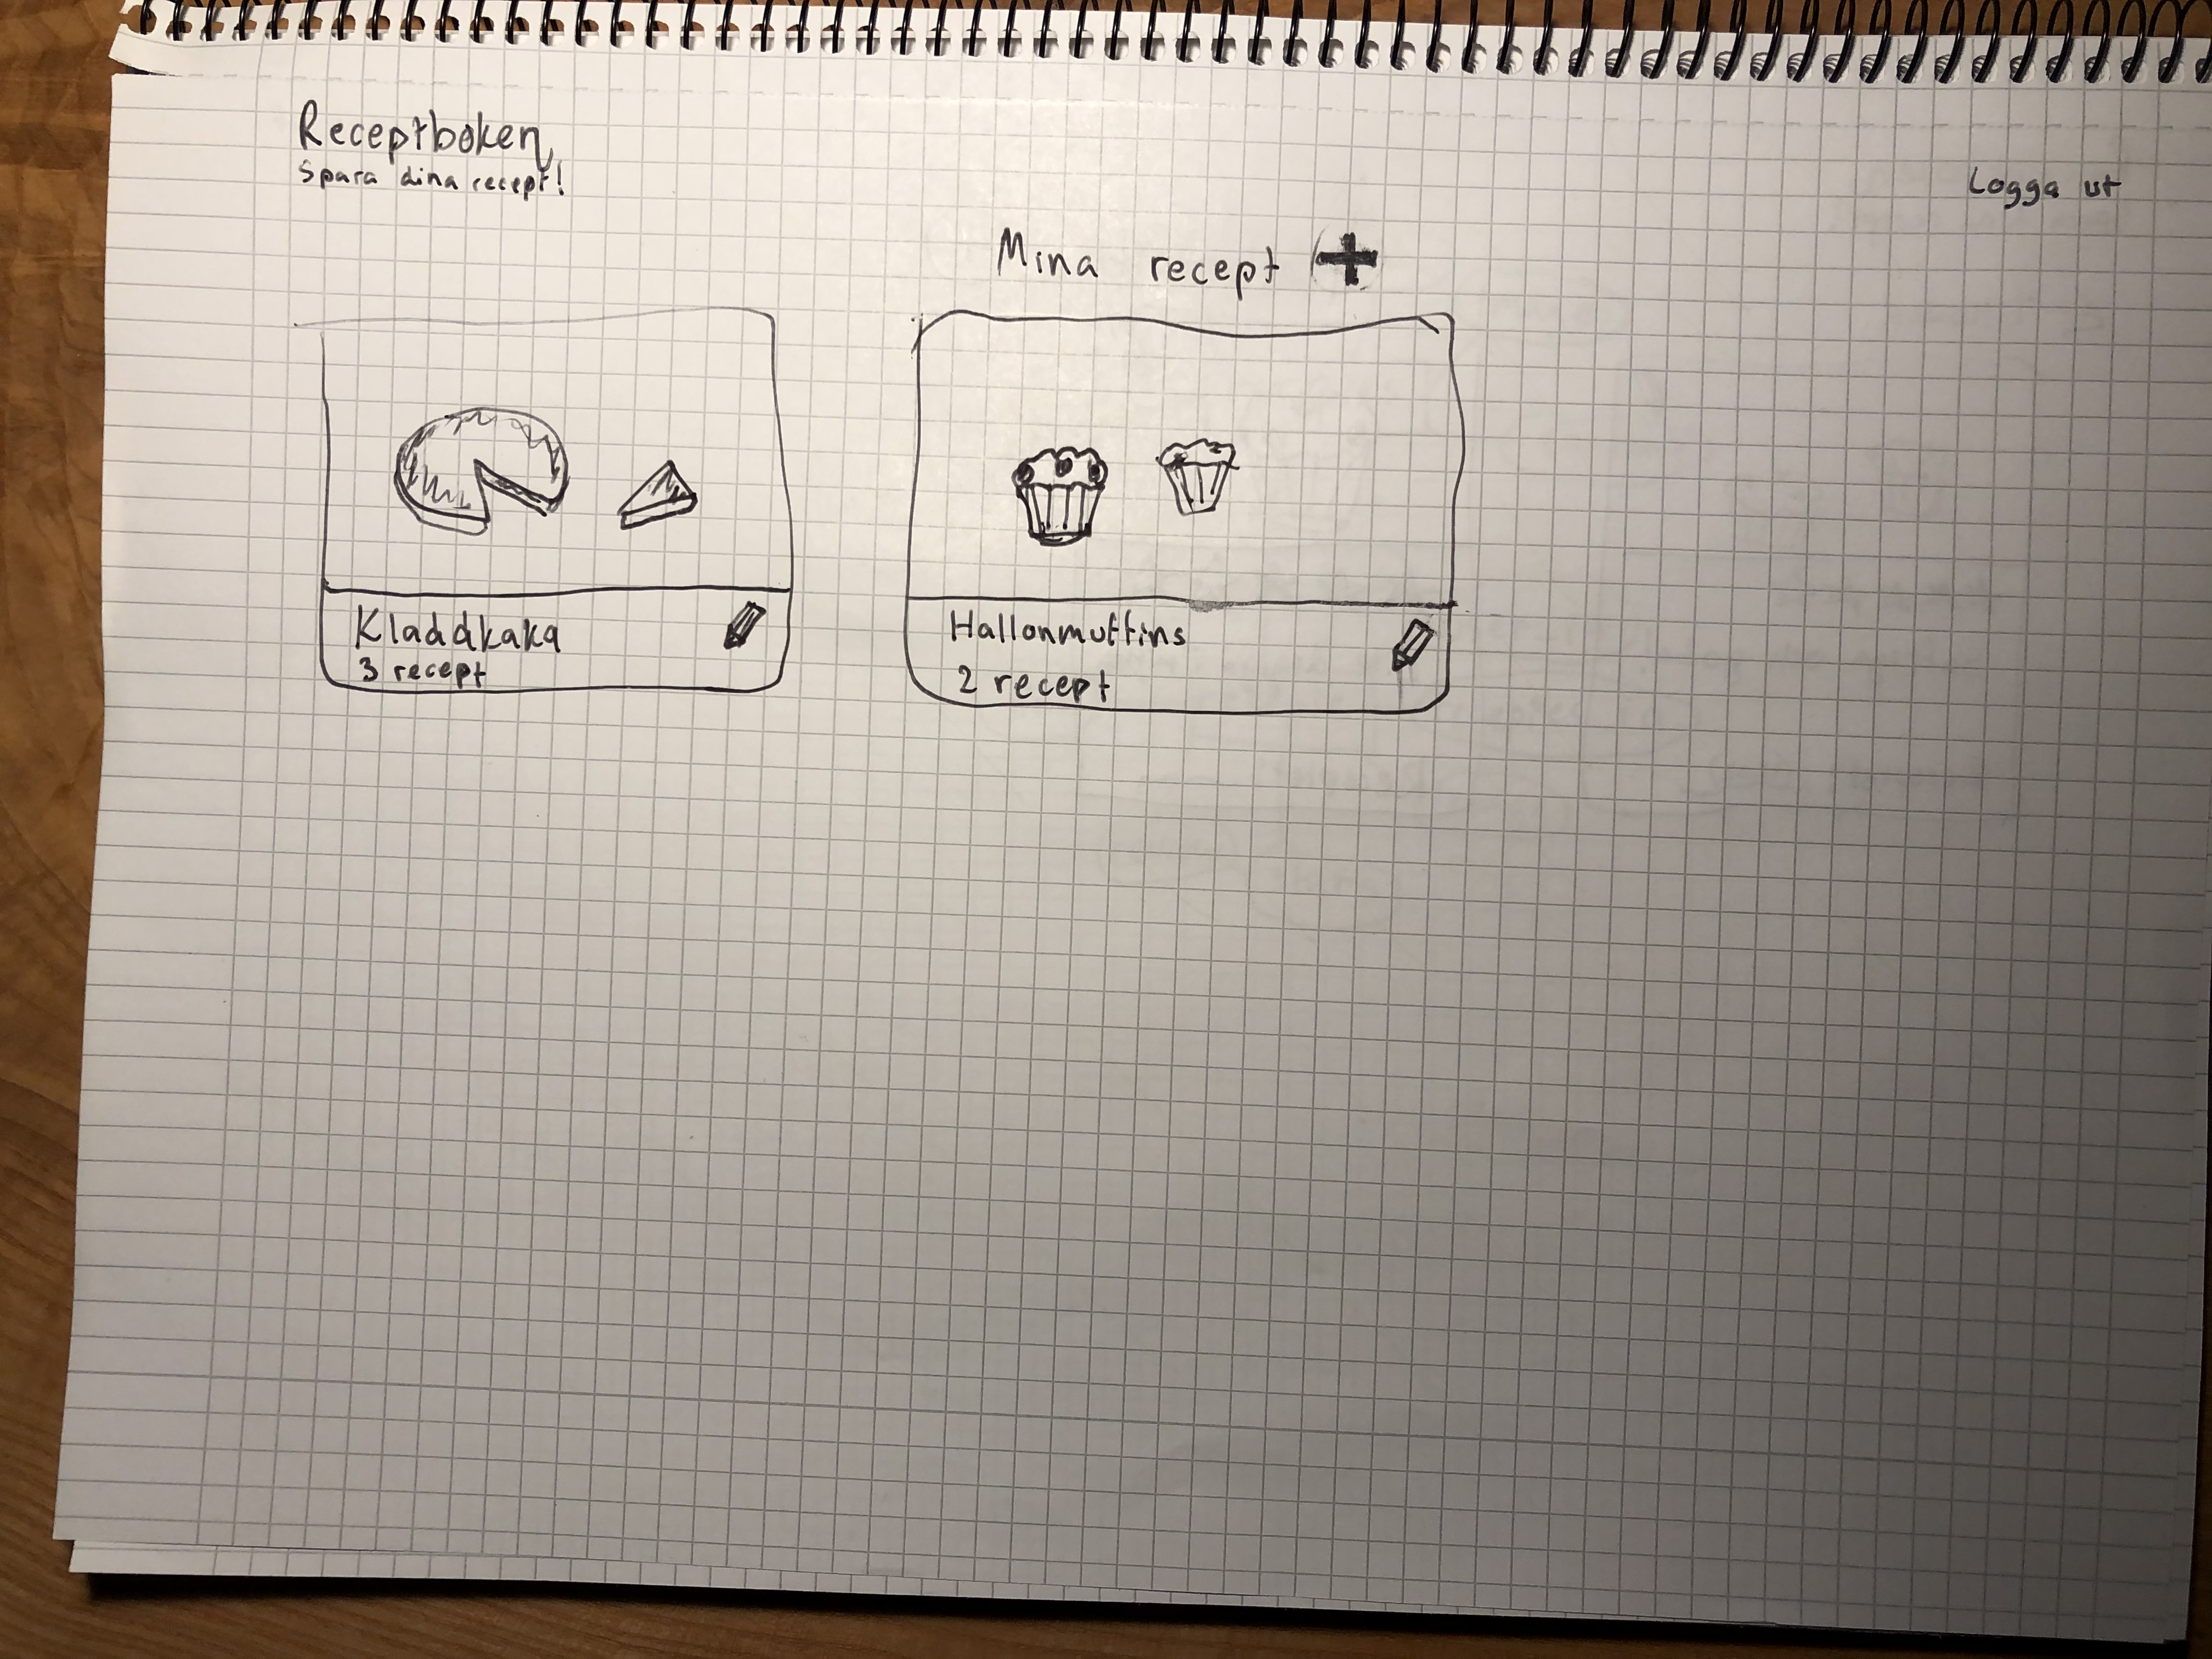 Receptboken
Spara dina recept!
Logga ut
Mina recept +
Kladdkaka
3 recept
Hallonmuffins
2 recept